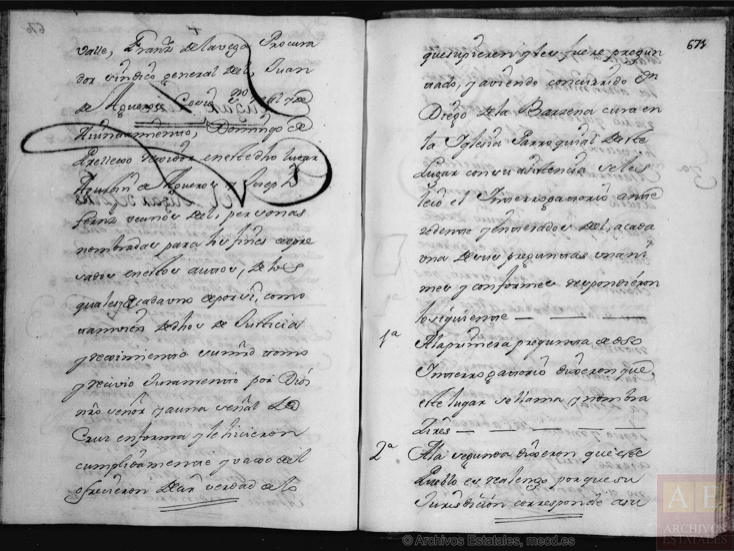 valle, Franco de la vega Procura
dor sindico general del, Juan
de Agueros Essno de
Aiuntamiento, Domingo de
vezinos en este dho lugar
Agustin de Agueros y Joseph
Fernz vecinos del, personas
nombradas para los fines expre
sados en estos autos, de los
quales y de cada uno de por si, como
tamvien de dhos de Justicia
y rexximiento su mrd tomo
y recivio Juramento por Dios
nro señor y a una señal de
Cruz en forma y le hicieron
cumplidamente y vajo del
ofrecieron decir verdad de lo
673
que supieren y les fuere pregun
tado, y aviendo concurrido Dn
Diego de la Barzena cura en
la Iglesia Parroquial de este
Lugar con su asistencia se les
leio el Interrogatorio ante
zedente y enterados del, a cada
una de sus preguntas unani
mes y conformes respondieron
lo siguiente
1ª A la primera pregunta de ese
Interrogatorio dixeron que
este lugar se llama y nombra
2ª A la segunda dixeron que este
Pueblo es realengo porque su
Jurisdicion corresponde a su
AE
ARCHIVOS
ESTATALES
© Archivos Estatales, mecd.es